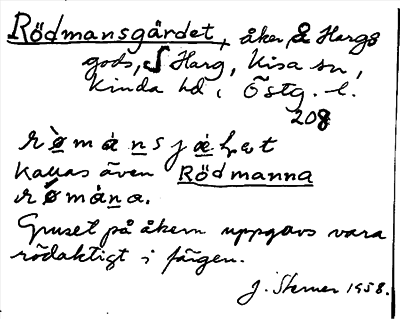 Rödmansgärdet, åker, å Hargs
gods, S Harg, Kisa sn,
Kinda hd, Östg. l.
208
rø̀mánsjǽḷət
Kallas även Rödmanna
rø̀mána.
Gruset på åkern uppgavs vara
rödaktigt i färgen.
J. Sterner 1958.